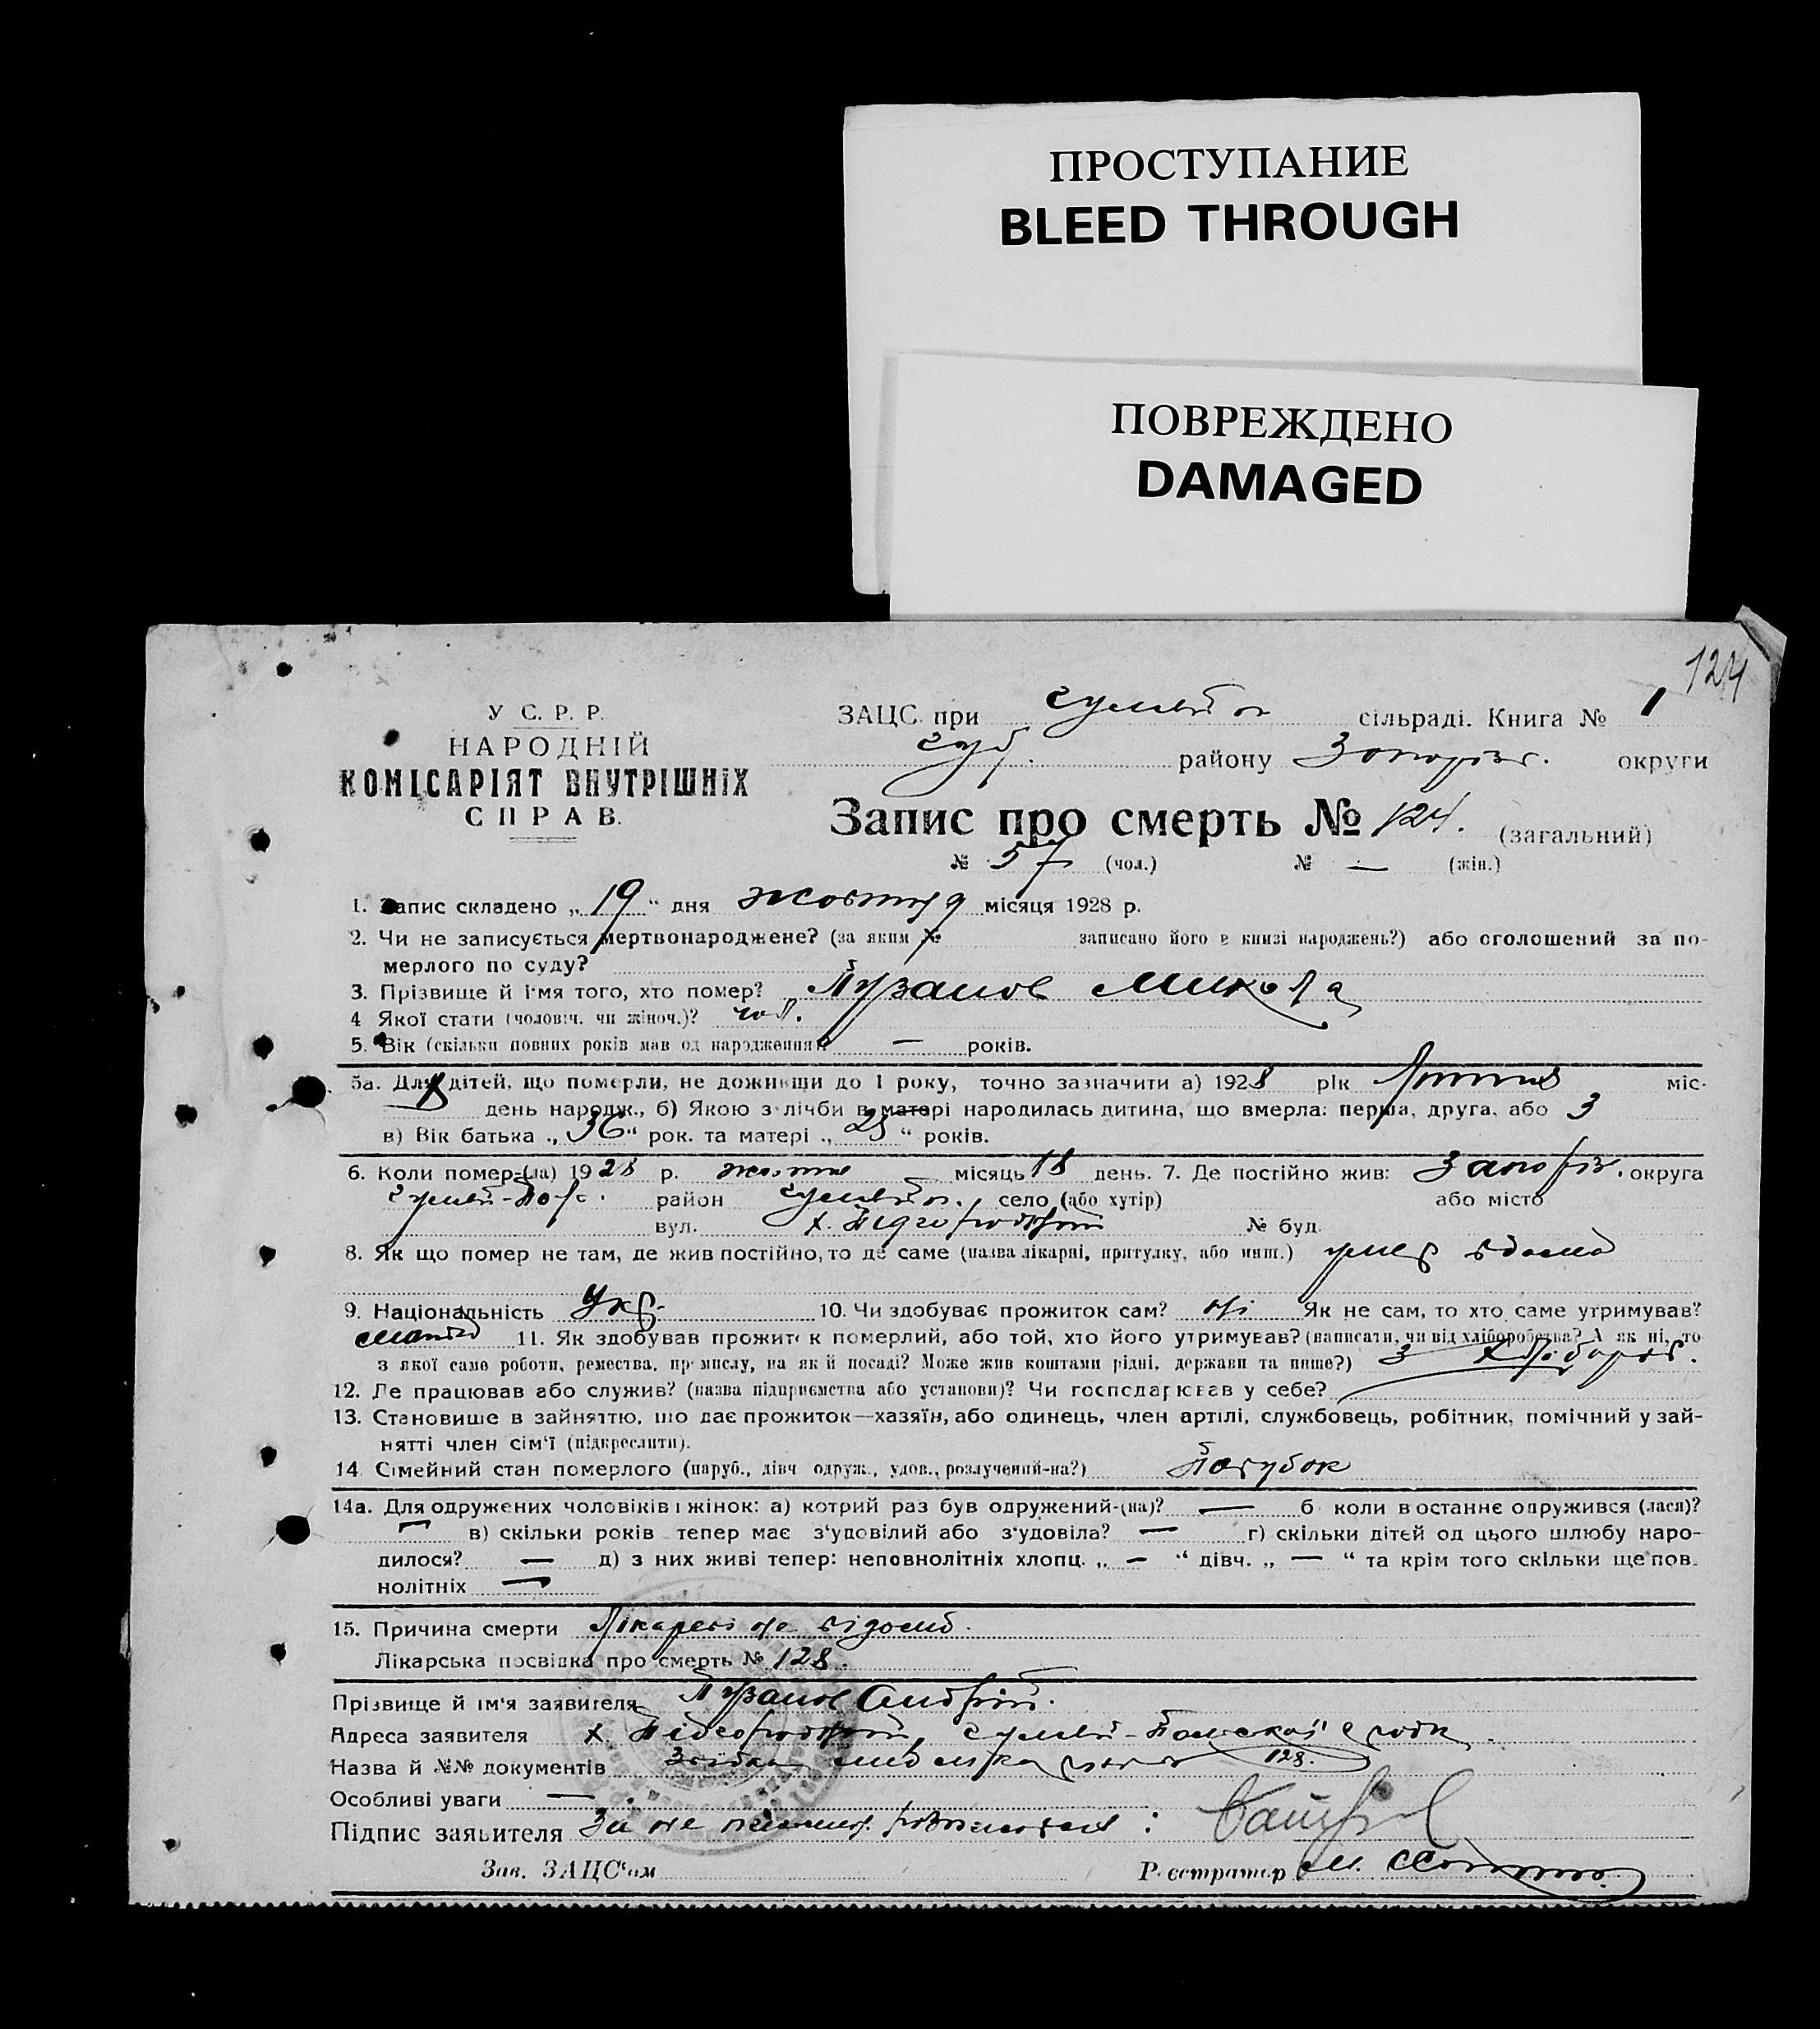 ПРОСТУПАНИЕ
BLEED THROUGH
ПОВРЕЖДЕНО
DAMAGED
124
У С. Р. Р.
НАРОДНІЙ
КОМІСАРІЯТ ВНУТРІШНІХ
СПРАВ.
ЗАЦС при сільраді. Книга № 1
району Запоріз. округи
Запис про смерть № 124. (загальний)
№ 57 (чол.) № — (жін.)
1. Запис складено „ 19 “ дня жовтня місяця 1928 р.
2. Чи не записується мертвонароджене? (за яким № записано його в книзі народжень?) або оголошений за по-
мерлого по суду?
3. Прізвище й ім'я того, хто помер? Пузанов Микола
4 Якої стати (чоловіч. чи жіноч.)? чол.
5. Вік (скільки повних років мав од народження) — років.
5а. Для дітей, що померли, не доживши до 1 року, точно зазначити а) 1928 рік міс.
день народж., б) Якою з лічби в матері народилась дитина, що вмерла: перша, друга, або 3
в) Вік батька „ 36 “ рок. та матері „ 25 “ років.
6. Коли помер-(ла) 1928 р. жовтня місяць 18 день. 7. Де постійно жив: Запоріз. округа
район село (або хутір) або місто
вул. № буд.
8. Як що помер не там, де жив постійно, то де саме (назва лікарні, притулку, або инш.) умер вдома
9. Національність Укр. 10. Чи здобуває прожиток сам? ні Як не сам, то хто саме утримував?
11. Як здобував прожиток померлий, або той, хто його утримував? (написати, чи від хліборобства? А як ні, то
з якої саме роботи, ремества, промислу, на якій посаді? Може жив коштами рідні, держави та инше?) З хлібороб.
12. Де працював або служив? (назва підприємства або установи)? Чи господарював у себе?
13. Становише в зайняттю, що дає прожиток—хазяїн, або одинець, член артілі, службовець, робітник, помічний у зай-
нятті член сім'ї (підкреслити).
14 Сімейний стан померлого (паруб., дівч одруж., удов., розлучений-на?) Парубок
14а. Для одружених чоловіків і жінок: а) котрий раз був одружений-(на)? — б коли в останнє одружився (лася)?
— в) скільки років тепер має з'удовілий або з'удовіла? — г) скільки дітей од цього шлюбу наро-
дилося? — д) з них живі тепер: неповнолітніх хлопц. „ — “ дівч. „ — “ та крім того скільки ще пов.
нолітніх —
15. Причина смерти Лікареві не відомо.
Лікарська посвідка про смерть № 128.
Прізвище й ім'я заявителя Пузанов Андрій.
Адреса заявителя х.
Назва й №№ документів 128.
Особливі уваги —
Підпис заявителя За не
Зав. ЗАЦС'ом Реєстратор М.